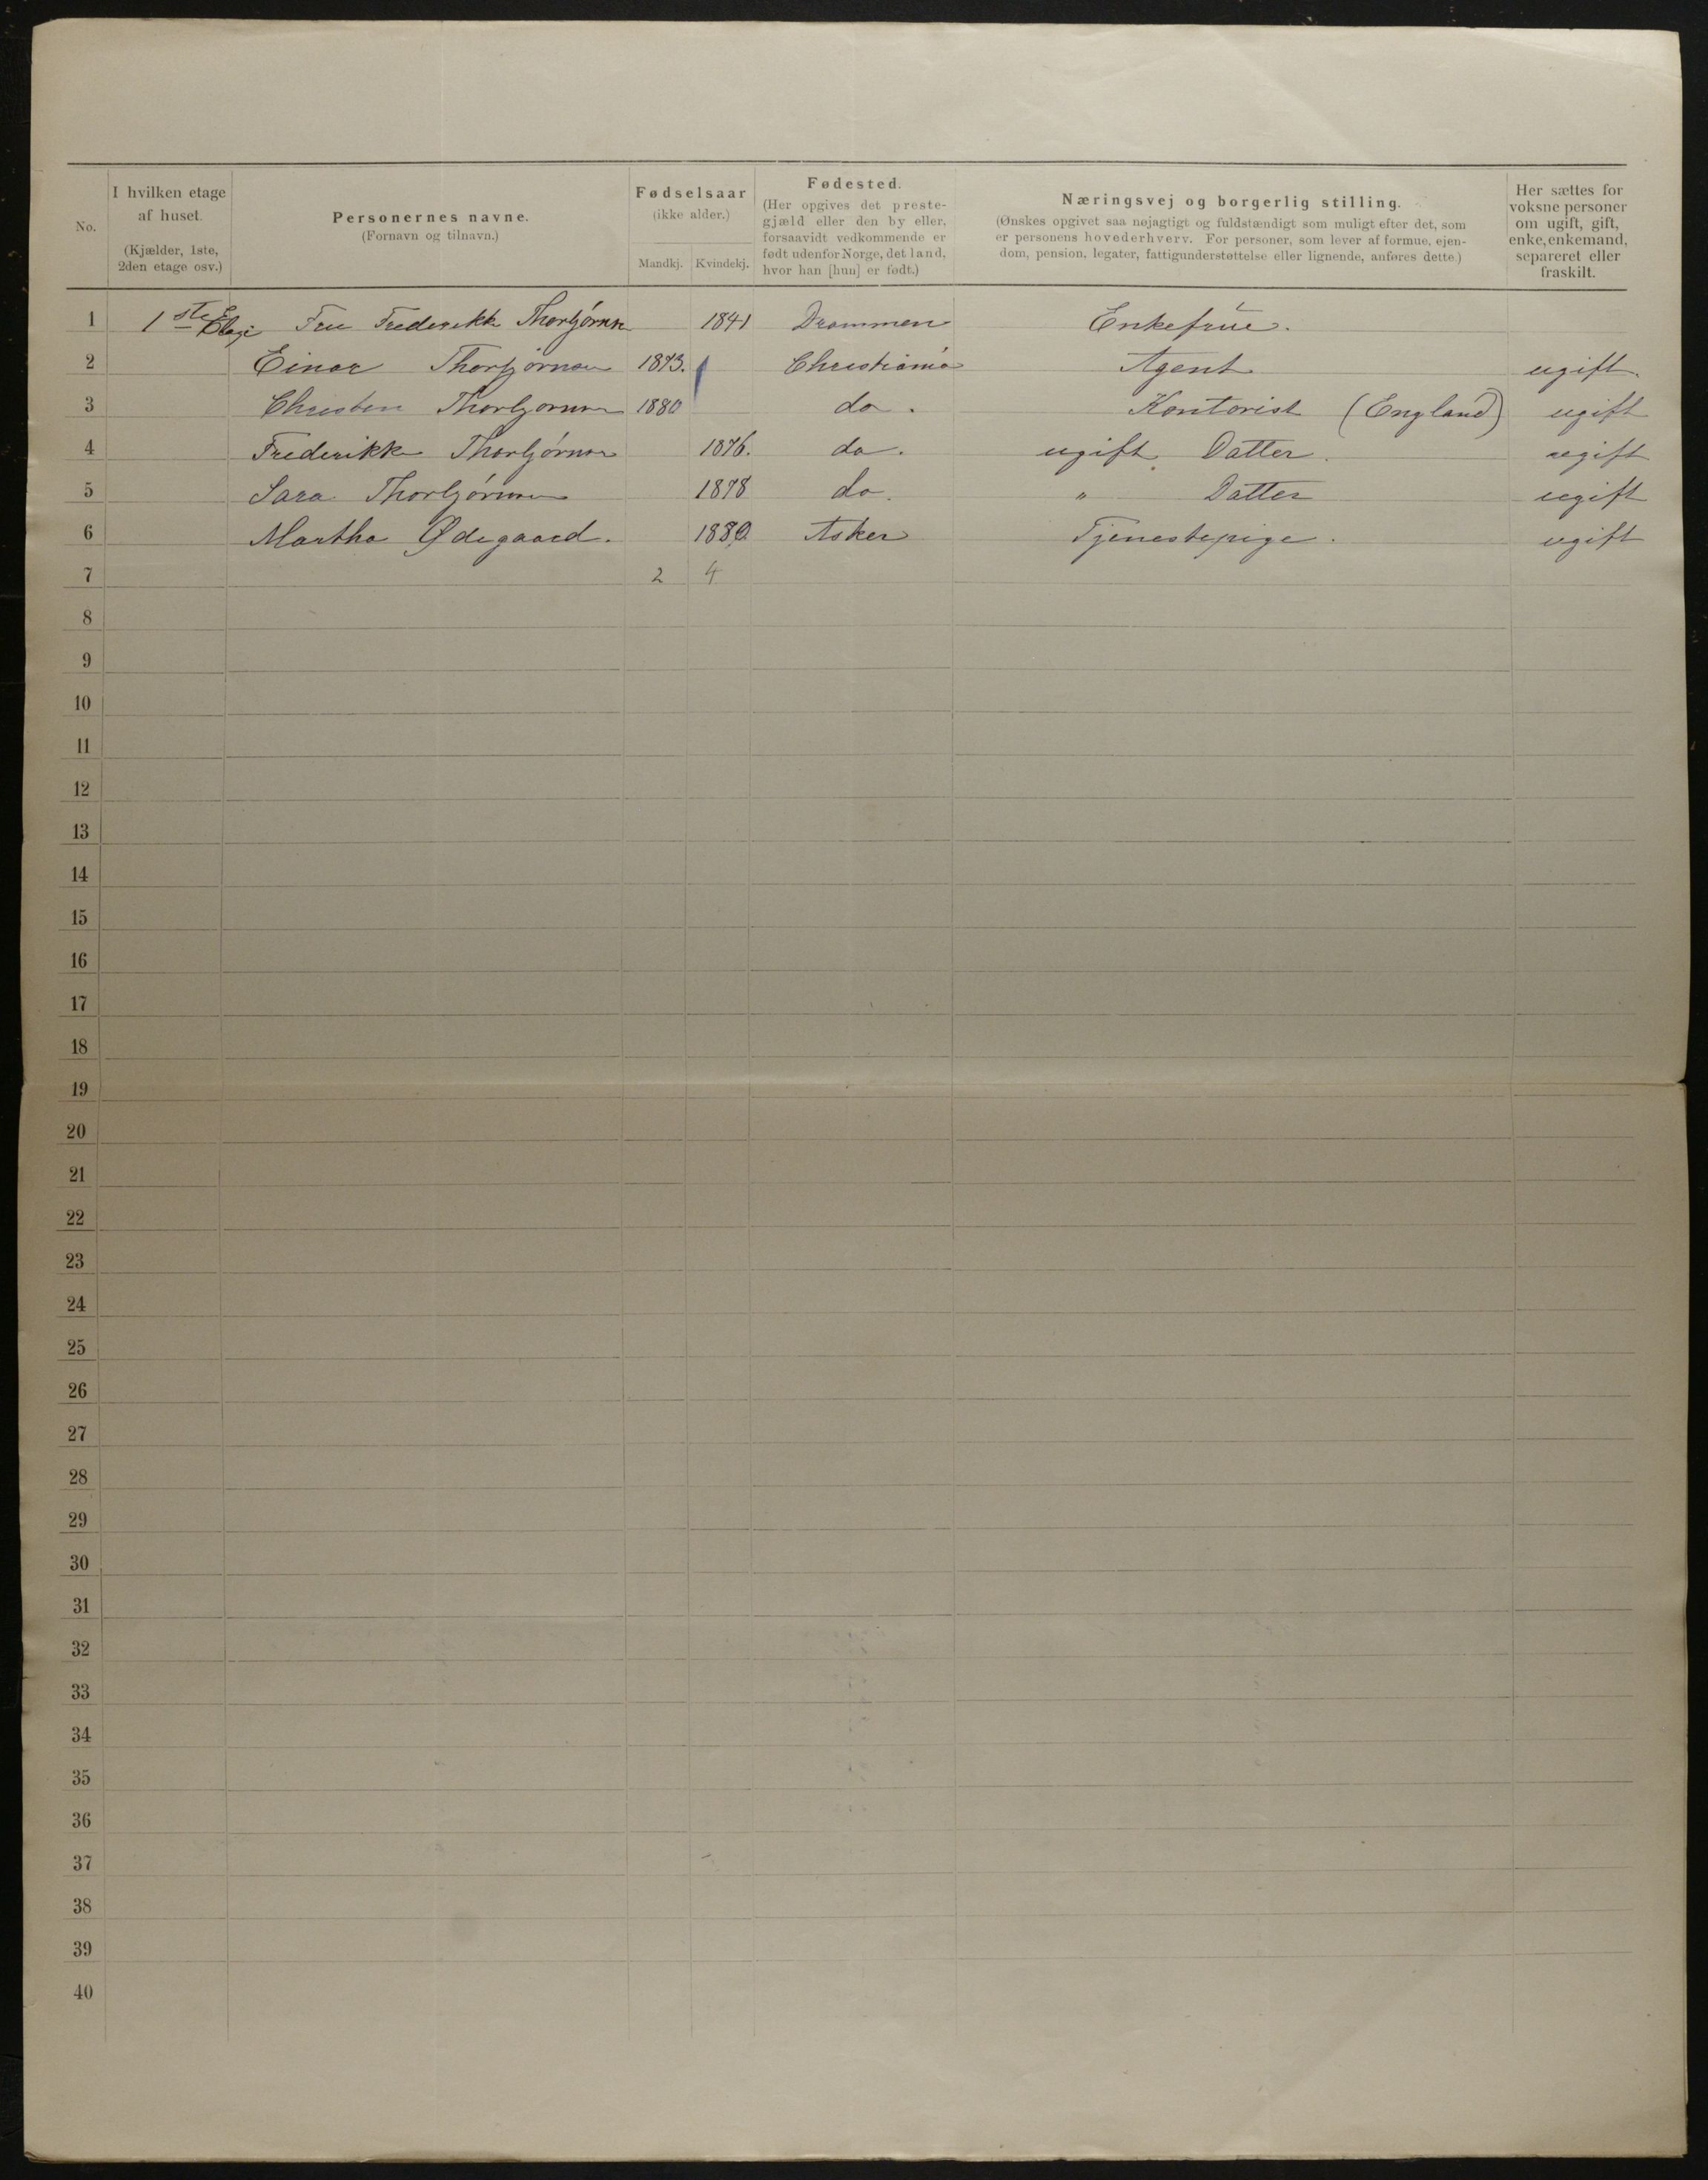 No.
I hvilken etage af huset.
(Kjælder, 1ste, 2den etage osv.)
Personernes navne.
(Fornavn og tilnavn.)
Fødselsaar
(ikke alder.)
Mandkj. Kvindekj.
Fødested.
(Her opgives det preste-
gjæld eller den by eller,
forsaavidt vedkommende er
født udenfor Norge, det land,
hvor han [hun] er født.)
Næringsvej og borgerlig stilling.
(Ønskes opgivet saa nøjagtigt og fuldstændigt som muligt efter det, som
er personens hovederhverv. For personer, som lever af formue, ejen-
dom, pension, legater, fattigunderstøttelse eller lignende, anføres dette.)
Her sættes for
voksne personer
om ugift, gift,
enke, enkemand,
separeret eller
fraskilt.
1 1ste Etage Fru Frederikke Thorbjørnsen 1841 Drammen Enkefrue.
2 Einar Thorbjørnsen 1873. Christiania Agent ugift.
3 Christen Thorbjørnsen 1880 do. Kontorist (England) ugift
4 Frederikke Thorbjørnsen 1876. do. ugift Datter. ugift
5 Sara Thorbjørnsen 1878 do. " Datter. ugift
6 Martha Ødegaard. 1880. Asker Tjenestepige. ugift
7 2 4
8
9
10
11
12
13
14
15
16
17
18
19
20
21
22
23
24
25
26
27
28
29
30
31
32
33
34
35
36
37
38
39
40